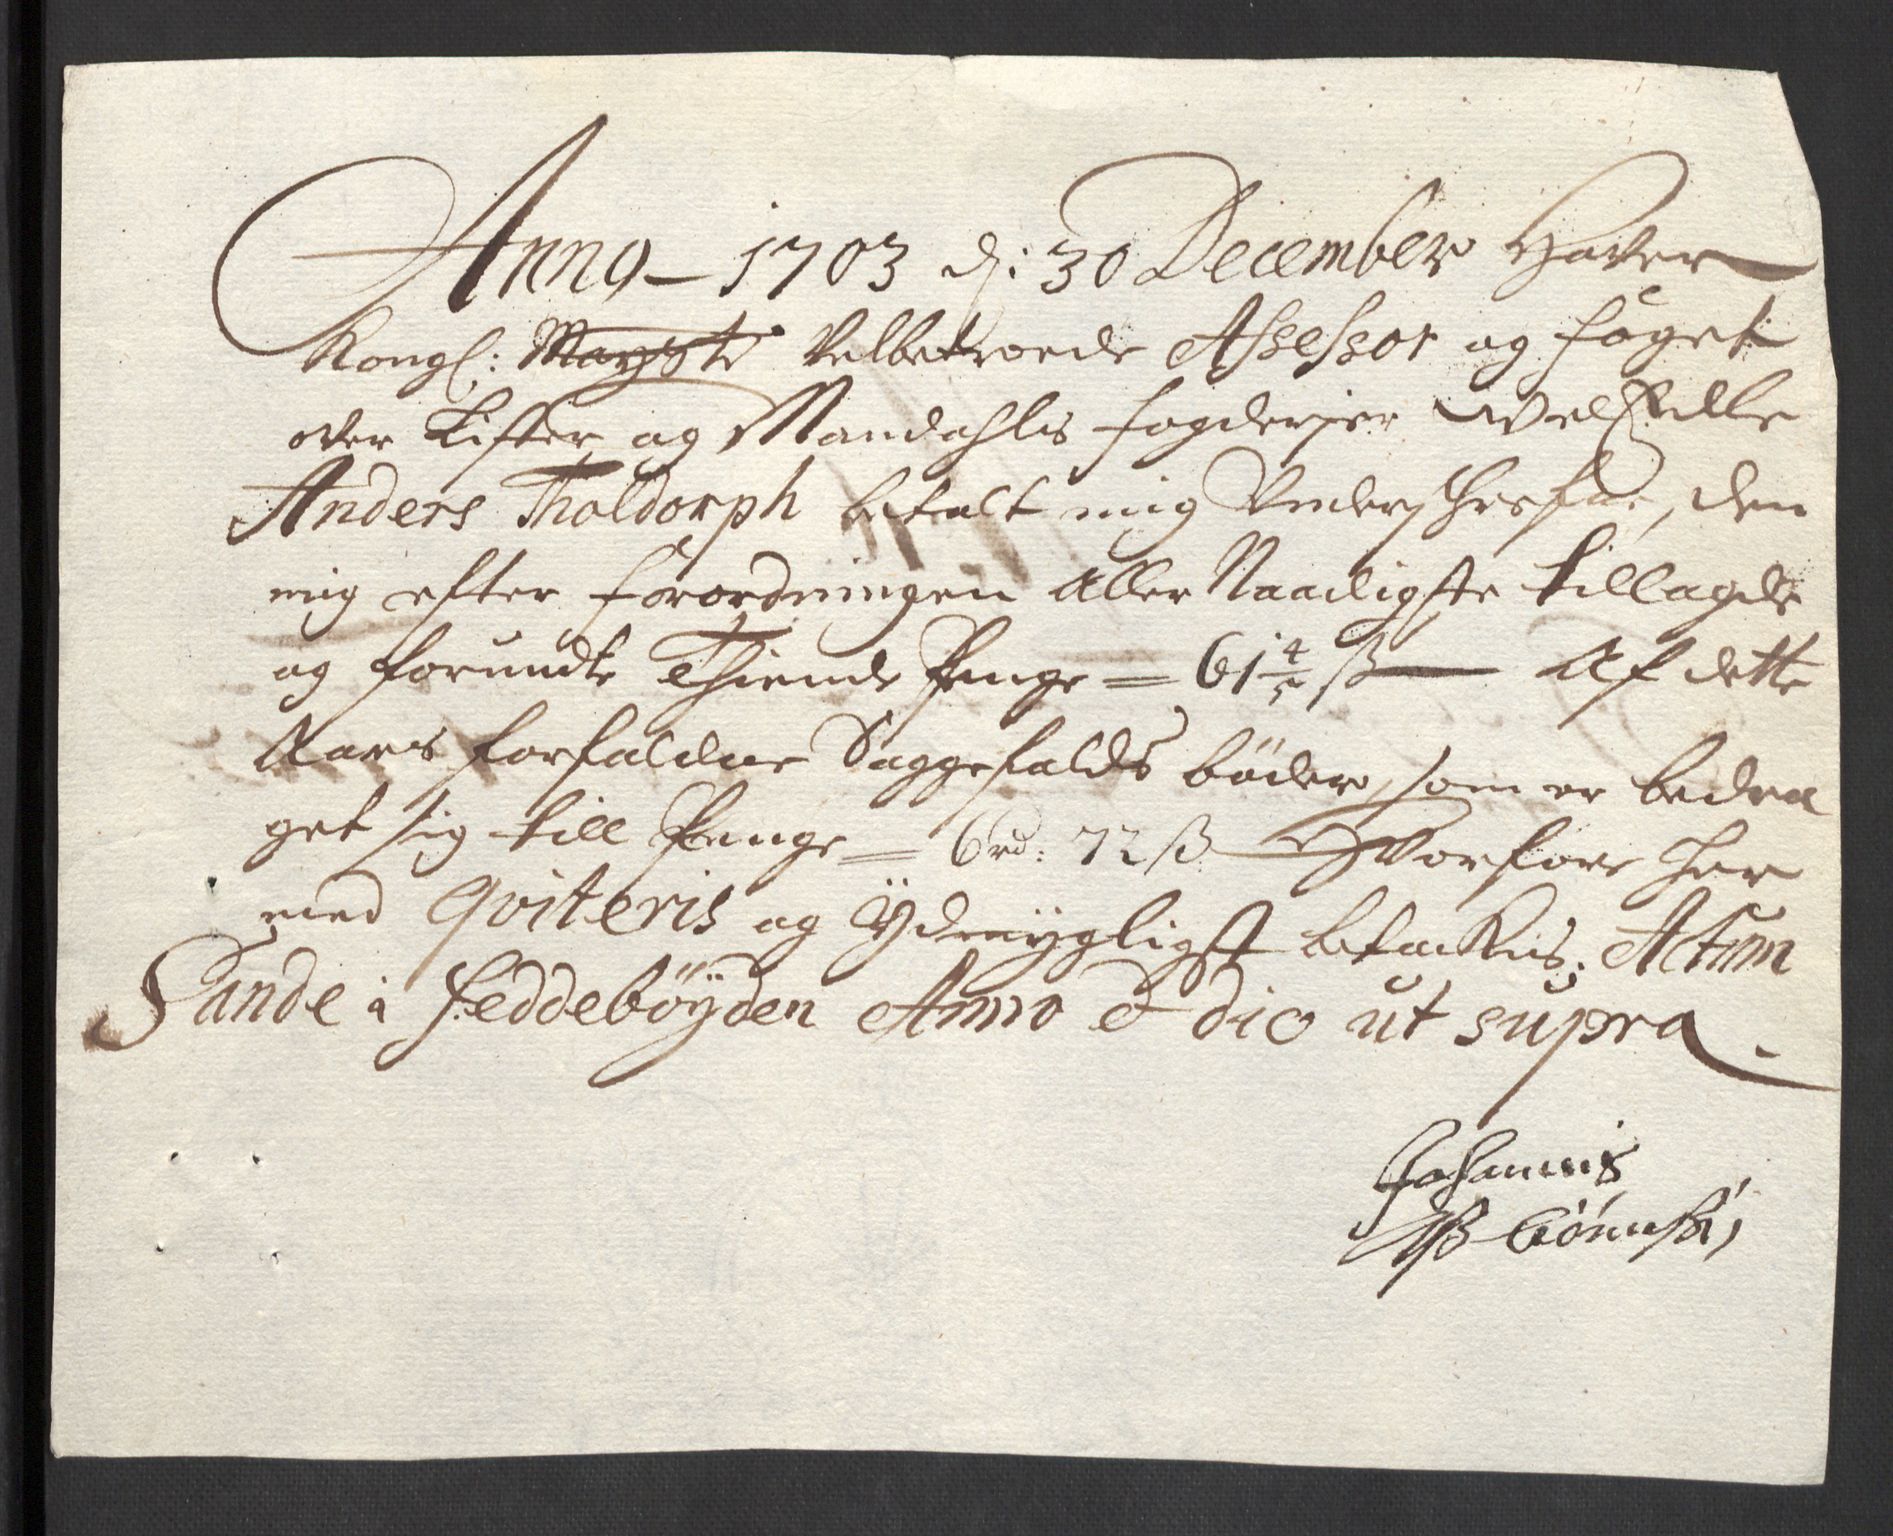 Anno 1703 d: 30 December Hafver
Kongl: Mayzte Velbetroede Assessor og foget
over Lister og Mandahls fogderjer Welædle
Anders Tholdorph betalt mig Underschrefne, den
mig efter forordningen Aller Naadigste tillagde
og forundte Thiende Penge = 61 4/5 ß Af dette
Aars forfaldne Saggefalds böder, som er bedra
get sig till Penge = 6 rd: 72 ß Hvorfore her
med Qviteris og Ydmygligst betackis. Actum
Sande i Feddeböyden Anno & die ut supra.
Johannis